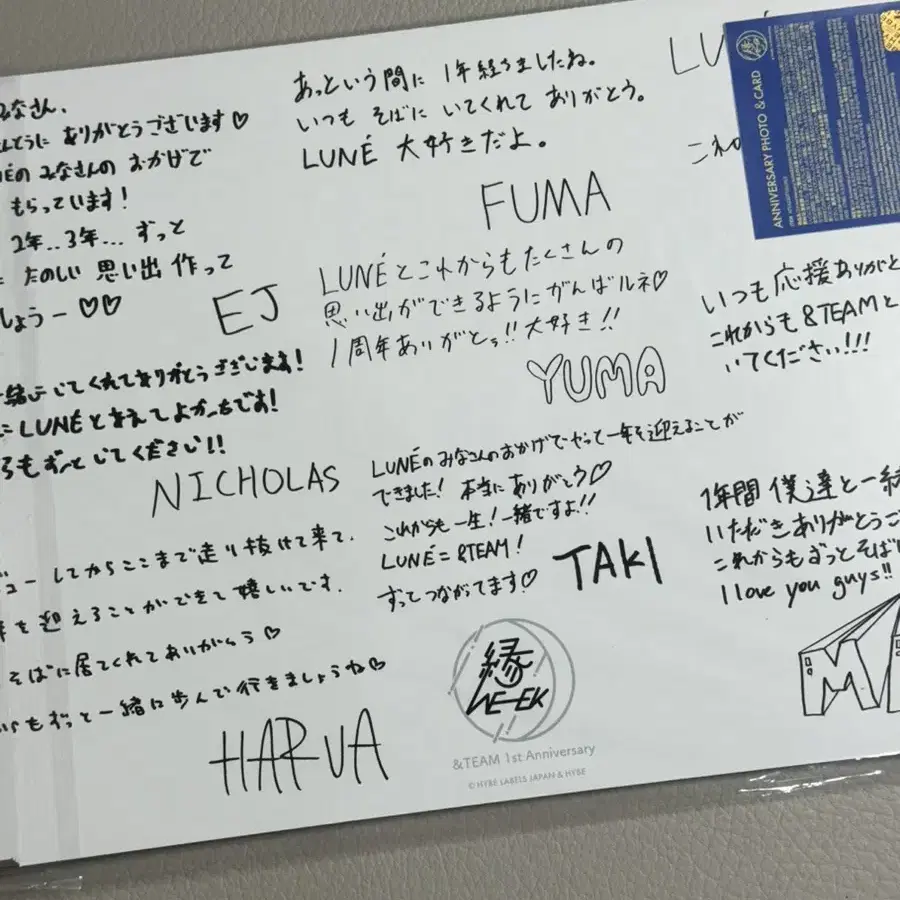 みなさん、
んとうに ありがとうございます♡
NÉの みなさんの おかげで
もらっています!
2年..3年... ずっと
たのしい 思い出 作って
しょうー ♡♡
EJ
緒にしてくれてありがとうございます!
にLUNÉと会えてよかったです!
らもずっといてください!!
NICHOLAS
ビューしてからここまで走り抜けて来て、
年を迎えることができて嬉しいです。
そばに居てくれてありがとう♡
らもずっと一緒に歩んで行きましょうね♡
HARUA
あっという間に 1年経ちましたね。
いつも そばに いてくれて ありがとう。
LUNÉ 大好きだよ。
FUMA
LUNÉとこれからもたくさんの
思い出ができるようにがんばルネ♡
1周年ありがとぅ!!大好き!!
YUMA
LUNÉのみなさんのおかげでやって一年を迎えることが
できました! 本当にありがとう♡
これからも一生!一緒ですよ!!
LUNÉ = &TEAM!
ずっとつながてます♡
TAKI
縁
WE-EK
&TEAM 1st Anniversary
© HYBE LABELS JAPAN & HYBE
LU
これ
ANNIVERSARY PHOTO & CARD
いつも応援ありがと
これからも &TEAMと
いてください!!!
1年間 僕達と一緒
いただきありがとうご
これからもずっとそばに
I love you guys!!
MA